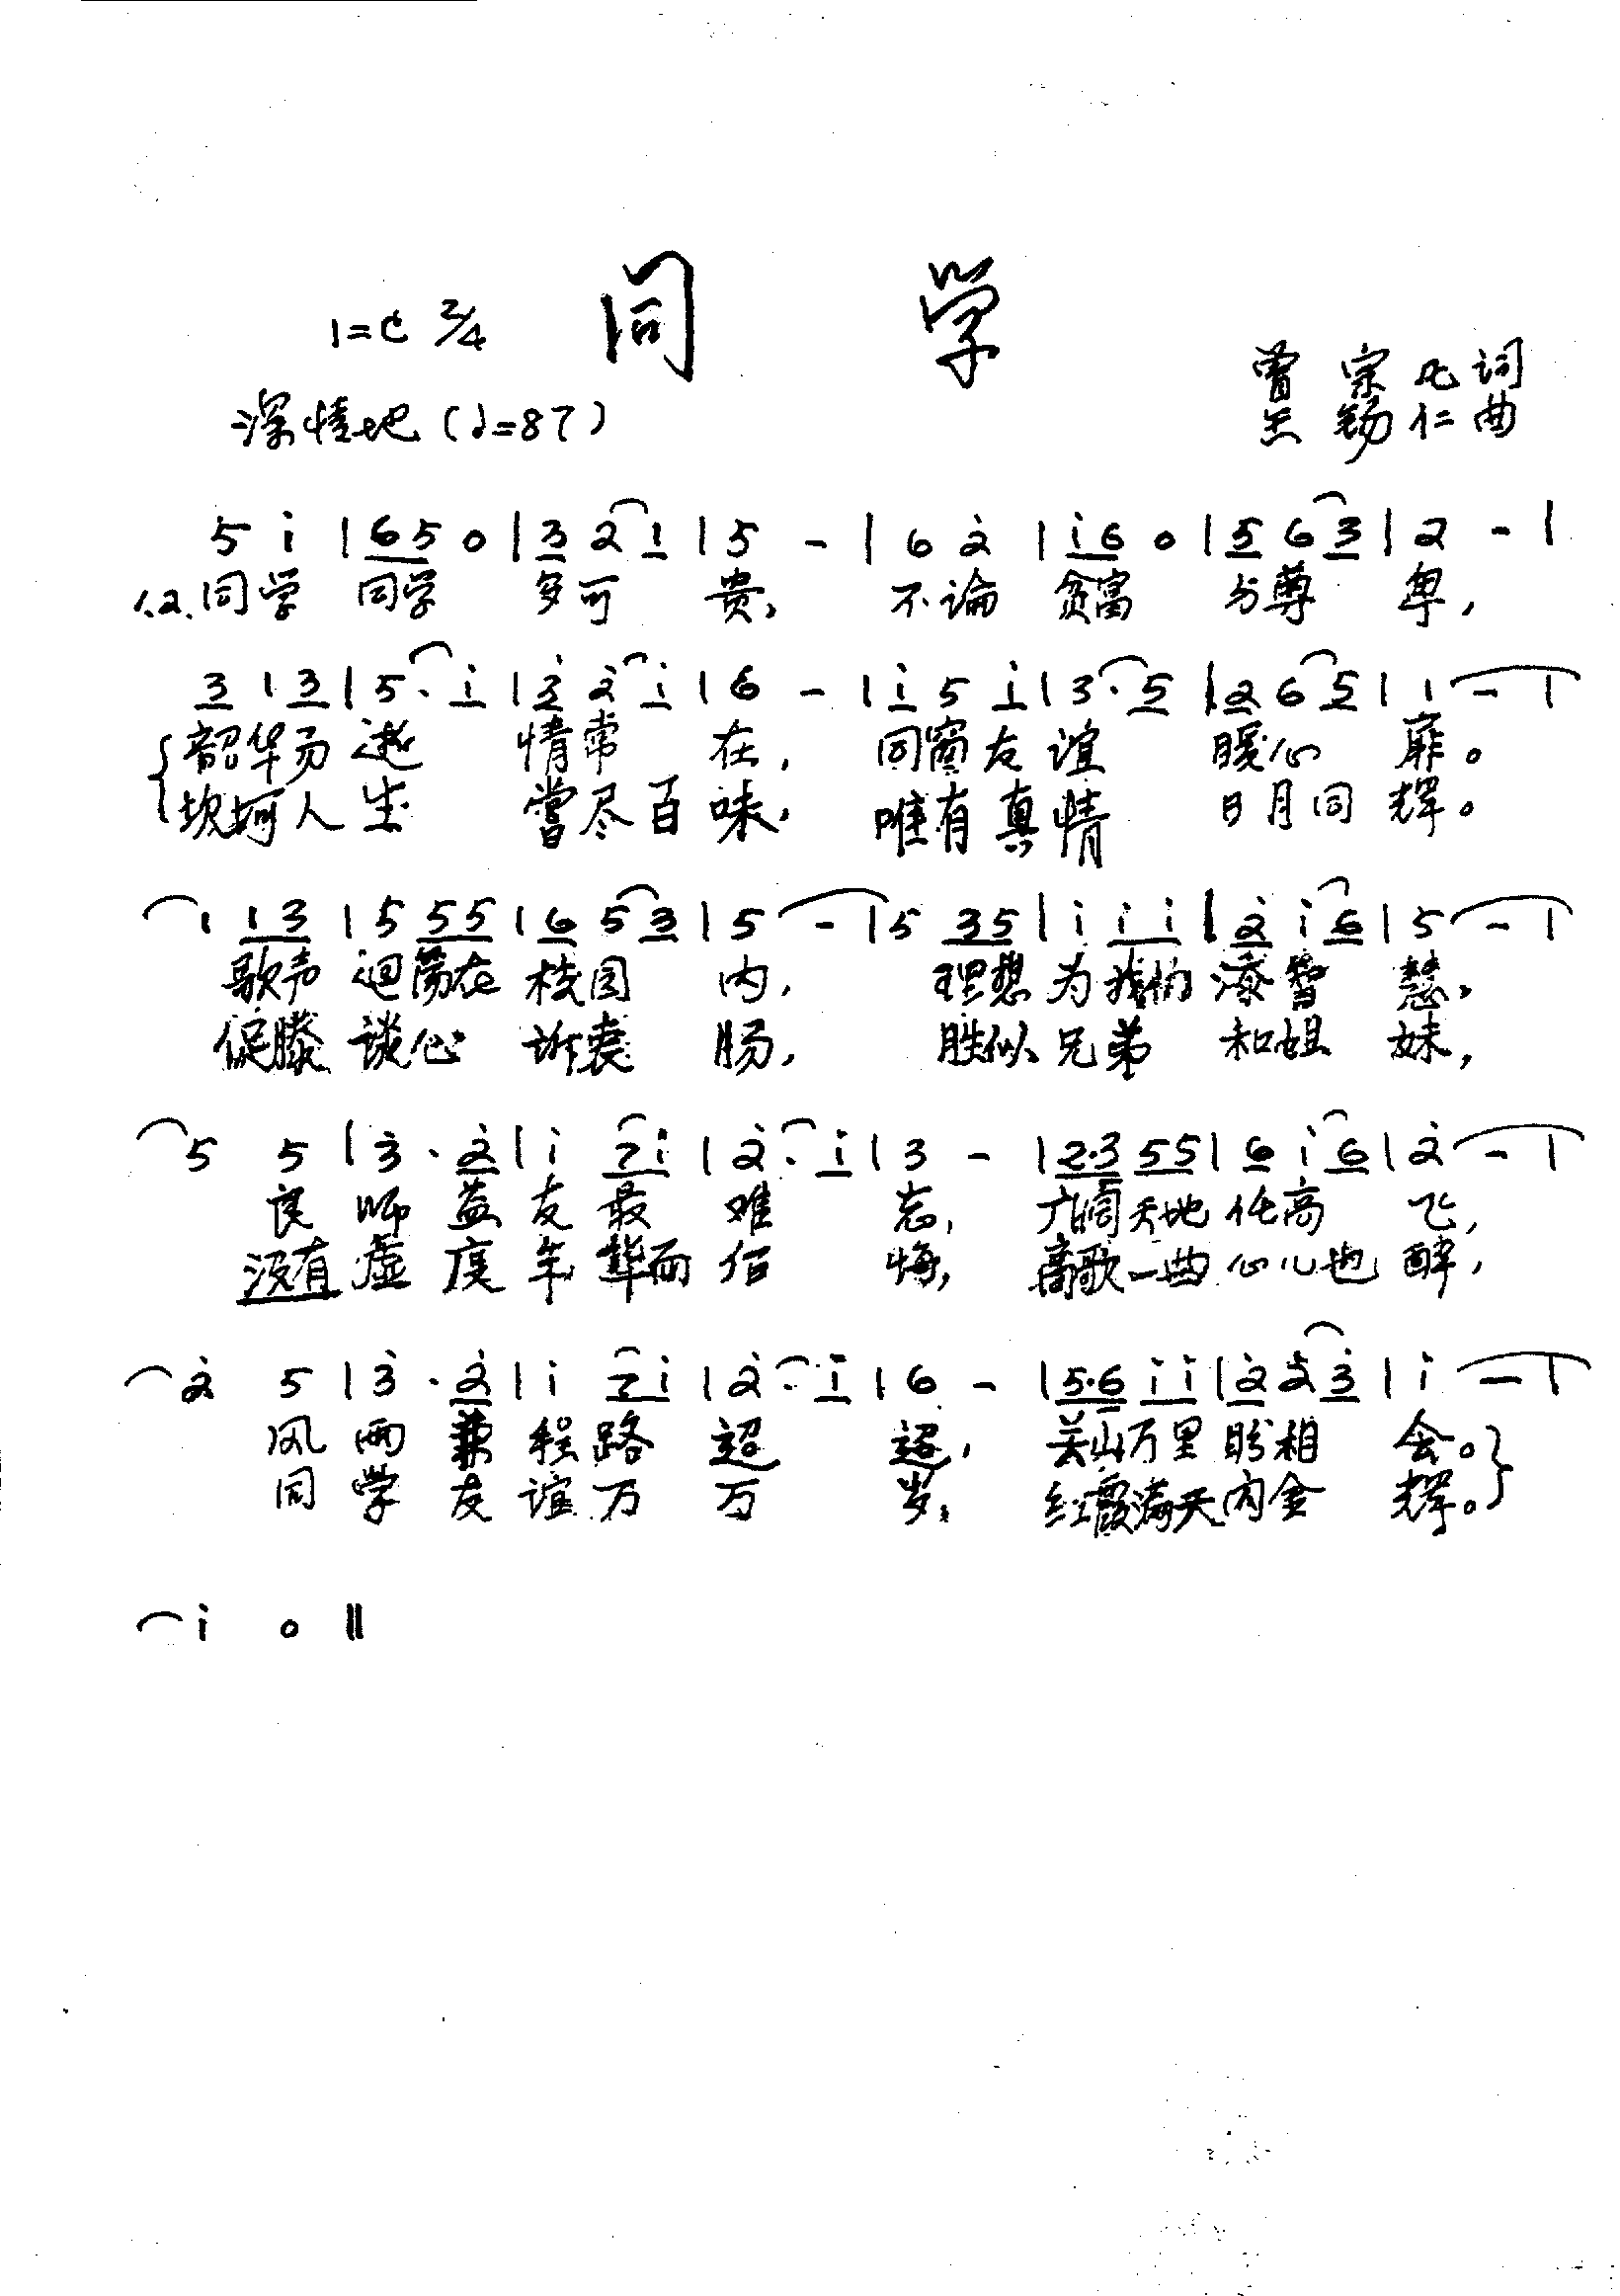 同 学
1=C 2/4
曾 宗 词
深情地 (♩=87)
王 锡 仁 曲
5 i | 6 5 0 | 3 2 1 | 5 - | 6 2 | i 6 0 | 5 6 3 | 2 - |
1.2.同学 同学 多可 贵, 不论 贫富 与尊 卑,
3 1 3 | 5 · i | 2 2 i | 6 - | i 5 i | 3 · 5 | 2 6 5 | 1 - |
韶华易逝 情常 在, 同窗友谊 暖心 扉。
坎坷人生 尝尽百味, 唯有真情 日月同辉。
1 1 3 | 5 5 5 | 6 5 3 | 5 - | 5 3 5 | i i i | 2 i 6 | 5 - |
歌声 迴荡在 校园 内, 理想为我们添智 慧,
促膝 谈心 诉衷 肠, 胜似兄弟 和姐 妹,
5 5 | 3 · 2 | i 7 i | 2 · i | 3 - | 2·3 5 5 | 6 i 6 | 2 - |
良 师 益 友 最 难 忘, 广阔天地 任高 飞,
没有 虚 度 年 华而 后 悔, 高歌一曲 心儿也 醉,
2 5 | 3 · 2 | i 7 i | 2 · i | 6 - | 5·6 i i | 2 2 3 | i - |
风 雨 兼 程 路 迢 迢, 关山万里 盼相 会。
同 学 友 谊 万 万 岁, 红霞满天 闪金 辉。
i 0 ‖